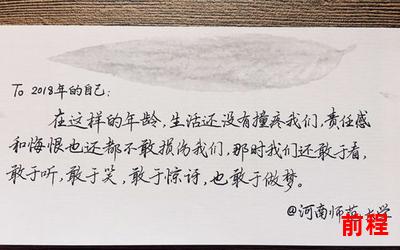 To 2018年的自己:
在这样的年龄,生活还没有撞疼我们,责任感
和悔恨也还都不敢损伤我们,那时我们还敢于看,
敢于听,敢于笑,敢于惊讶,也敢于做梦。
@河南师范大学
前程